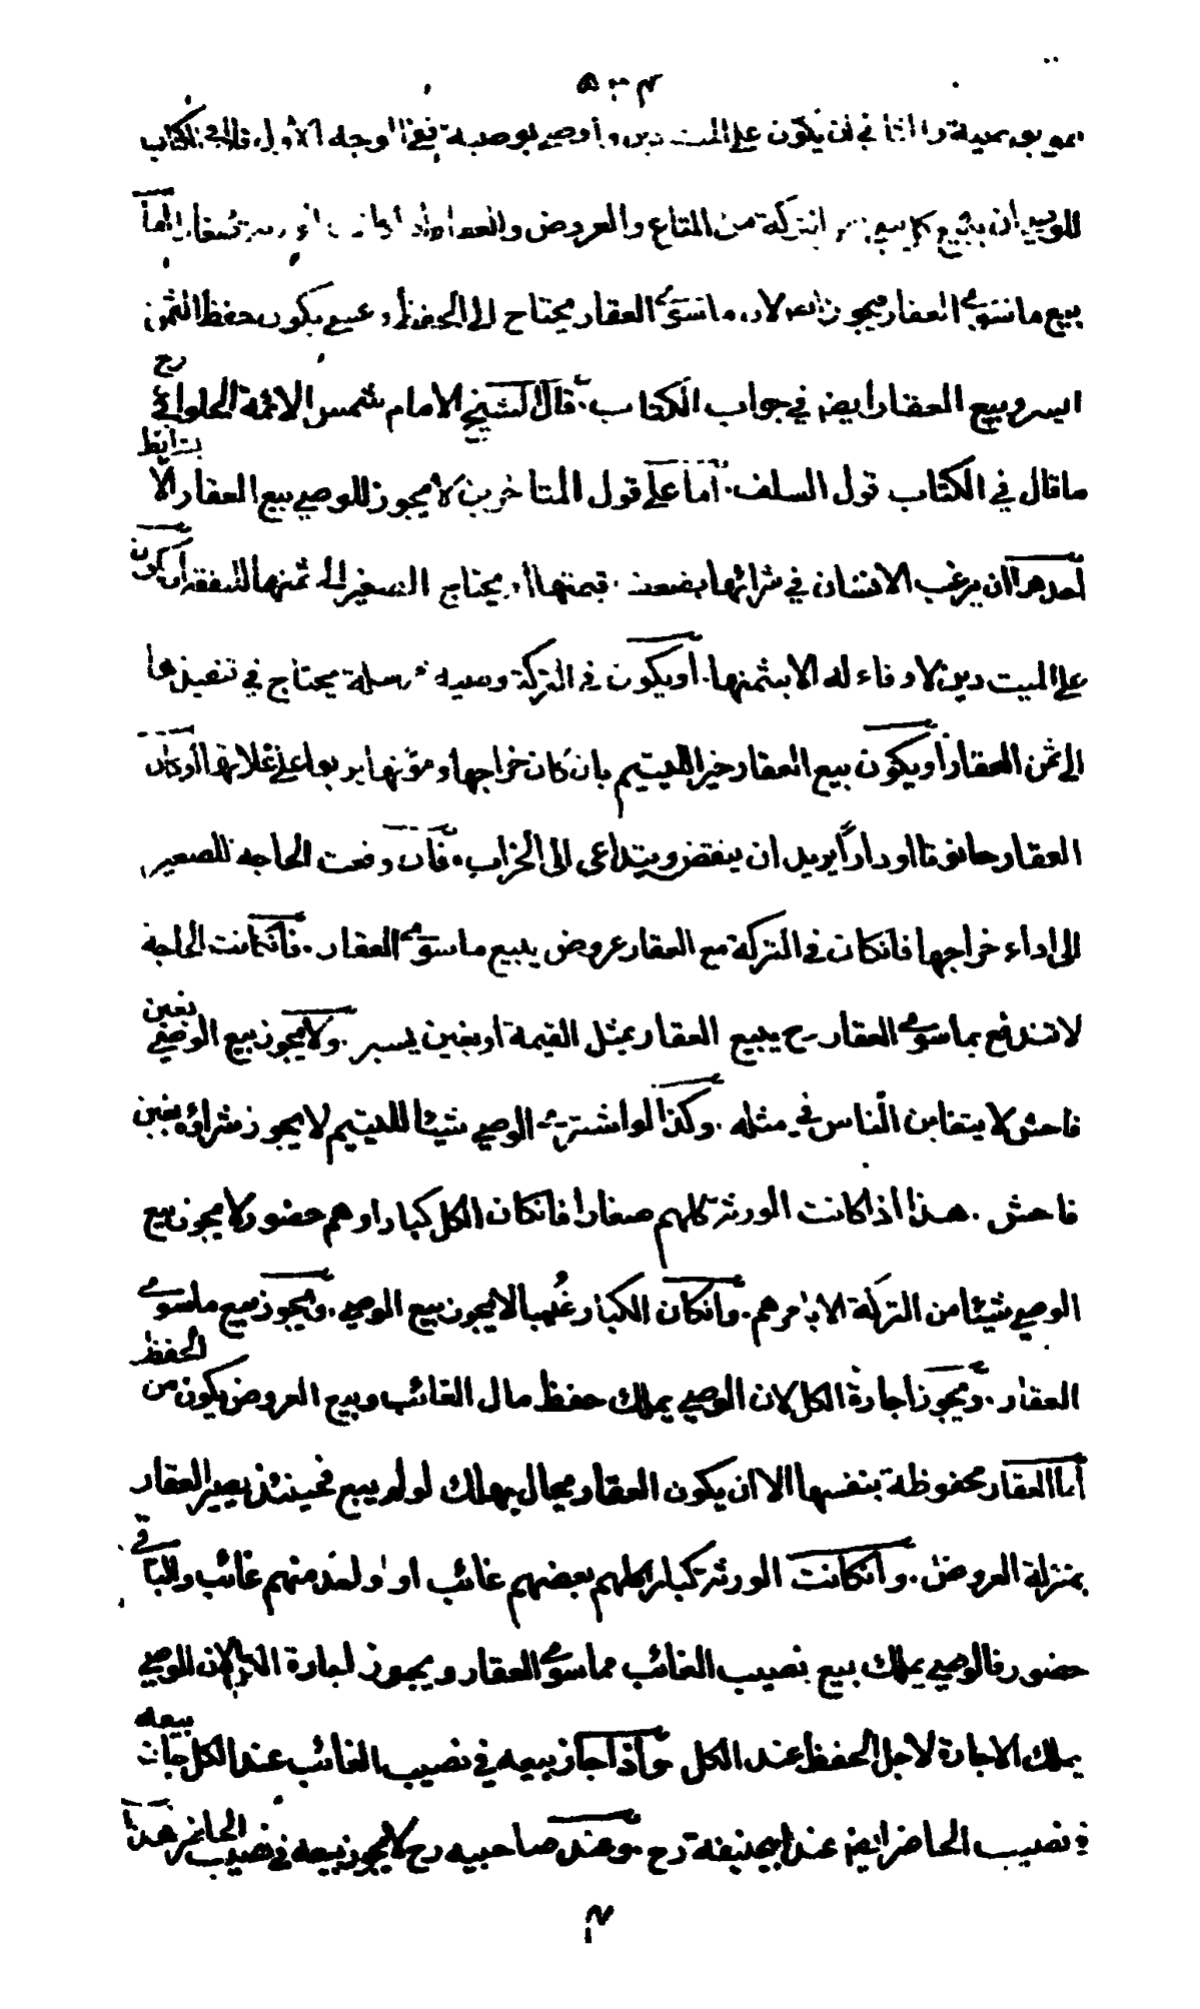 في ان يكون على الميت دين واوصى بوصية ففي الوجه الاول قال في الكتاب
للوصي ان يبيع كل شيء من التركة من المتاع والعروض والعقار اذا كانت الورثة صغارا اما
بيع ما سوى العقار فيجوز لان ما سوى العقار يحتاج الى الحفظ وعسى يكون حفظ الثمن
ايسر وبيع العقار ايضا في جواب الكتاب . قال الشيخ الامام شمس الائمة الحلوائي رح
ما قال في الكتاب قول السلف . اما على قول المتاخرين لا يجوز للوصي بيع العقار الا بشرائط
احدها ان يرغب الانسان في شرائها بضعف قيمتها او يحتاج الصغير الى ثمنها للنفقة او يكون
على الميت دين لا وفاء له الا بثمنها . او يكون في التركة وصية مرسلة يحتاج في تنفيذها
الى ثمن العقار او يكون بيع العقار خيرا لليتيم بان كان خراجها ومؤنها يربو على غلاتها او كان
العقار حانوتا او دارا يريد ان ينقض ويتداعى الى الخراب . فان وقعت الحاجة للصغير
الى اداء خراجها فانكان في التركة مع العقار عروض يبيع ما سوى العقار . فانكانت الحاجة
لا تندفع بما سوى العقار ح يبيع العقار بمثل القيمة او بغبن يسير . ولا يجوز بيع الوصي بغبن
فاحش لا يتغابن الناس في مثله . وكذا لو اشترى الوصي شيئا لليتيم لا يجوز شراؤه بغبن
فاحش . هذا اذا كانت الورثة كلهم صغارا فانكان الكل كبارا وهم حضور لا يجوز بيع
الوصي شيئا من التركة الا بامرهم . وانكان الكبار غيبا لا يجوز بيع الوصي . ويجوز بيع ما سوى
العقار . ويجوز اجارة الكل لان الوصي يملك حفظ مال الغائب وبيع العروض يكون من الحفظ
اما العقار محفوظة بنفسها الا ان يكون العقار بحال يهلك لو لم يبع فحينئذ يصير العقار
بمنزلة العروض . وانكانت الورثة كبارا كلهم بعضهم غائب او واحد منهم غائب والباقي
حضور فالوصي يملك بيع نصيب الغائب مما سوى العقار ويجوز اجارة الكل لان للوصي
يملك الاجارة لاجل الحفظ عند الكل واذا جاز بيعه في نصيب الغائب عند الكل جاز بيعه
في نصيب الحاضر ايضا عند ابيحنيفة رح . وعند صاحبيه رح لا يجوز بيعه في نصيب الحاضر هذا